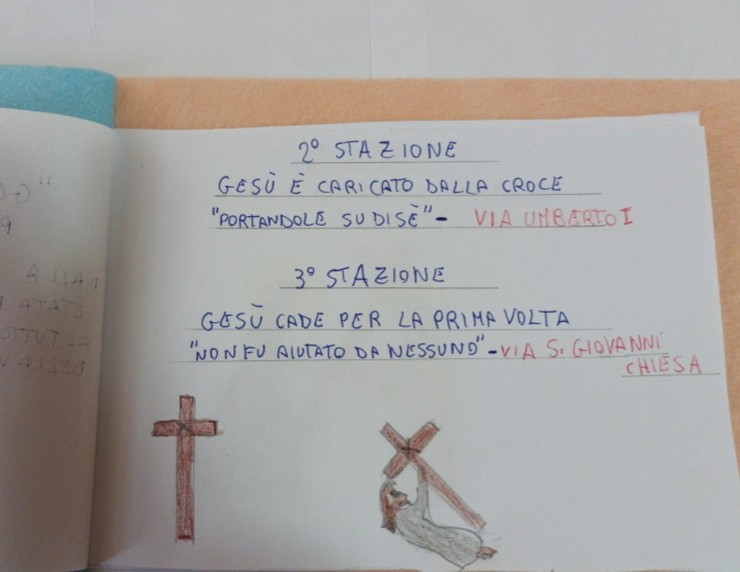 2° STAZIONE
GESÙ È CARICATO DALLA CROCE
"PORTANDOLE SU DI SÈ" - VIA UMBERTO I
3° STAZIONE
GESÙ CADE PER LA PRIMA VOLTA
"NON FU AIUTATO DA NESSUNO" - VIA S. GIOVANNI
CHIESA